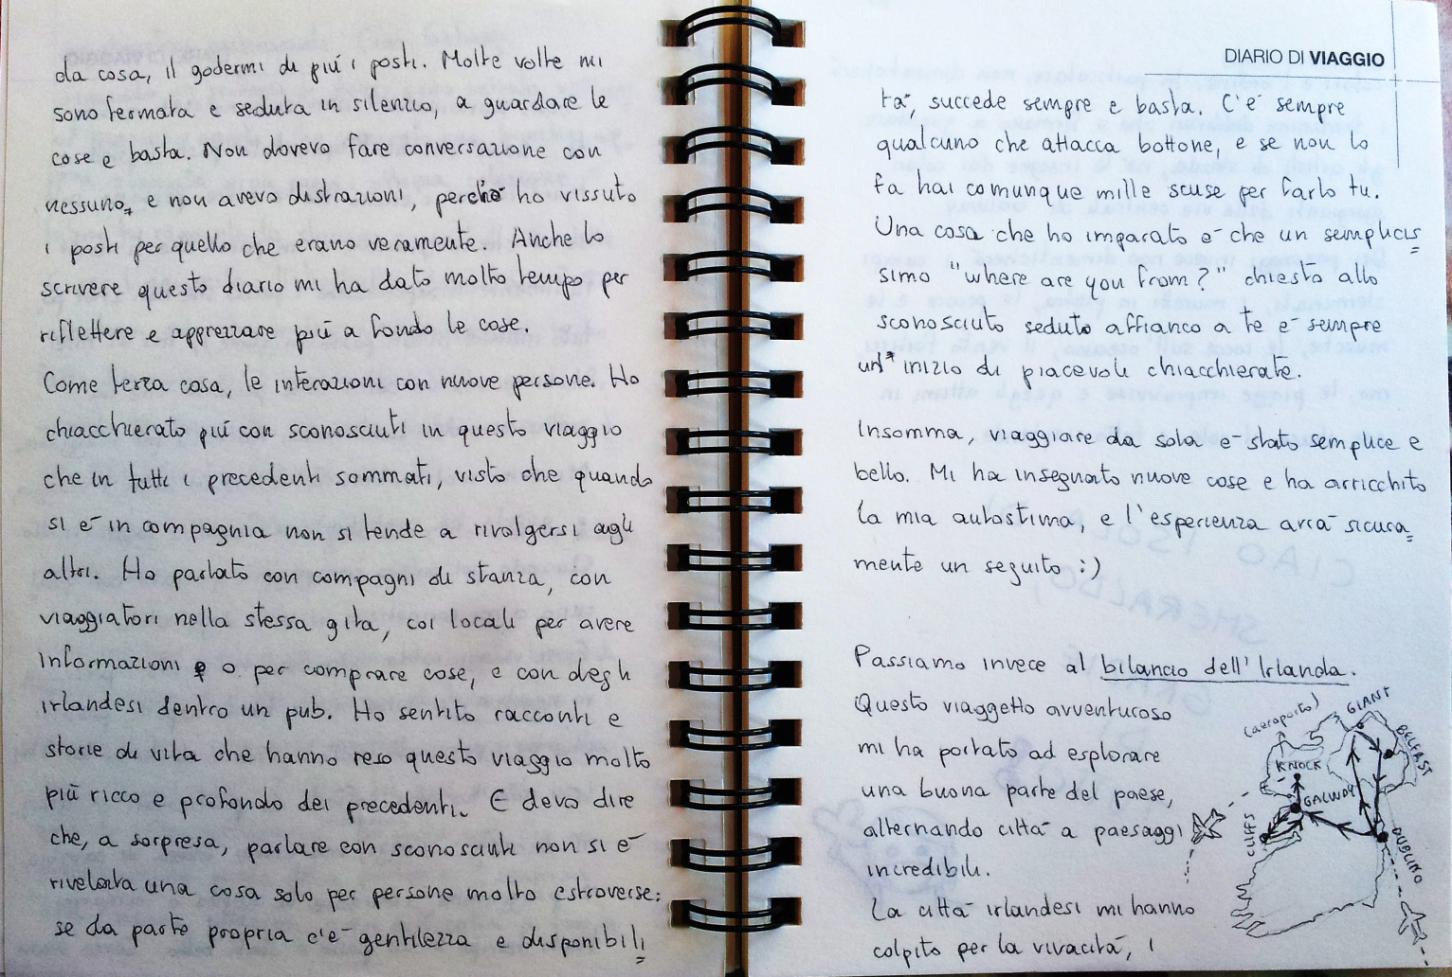 da cosa, il godermi di più i posti. Molte volte mi
sono fermata e seduta in silenzio, a guardare le
cose e basta. Non dovevo fare conversazione con
nessuno, e non avevo distrazioni, perchè ho vissuto
i posti per quello che erano veramente. Anche lo
scrivere questo diario mi ha dato molto tempo per
riflettere e apprezzare più a fondo le cose.
Come terza cosa, le interazioni con nuove persone. Ho
chiacchierato più con sconosciuti in questo viaggio
che in tutti i precedenti sommati, visto che quando
si è in compagnia non si tende a rivolgersi agli
altri. Ho parlato con compagni di stanza, con
viaggiatori nella stessa gita, coi locali per avere
informazioni o per comprare cose, e con degli
irlandesi dentro un pub. Ho sentito racconti e
storie di vita che hanno reso questo viaggio molto
più ricco e profondo dei precedenti. E devo dire
che, a sorpresa, parlare con sconosciuti non si è
rivelata una cosa solo per persone molto estroverse:
se da parte propria c'è gentilezza e disponibili
DIARIO DI VIAGGIO
tà, succede sempre e basta. C'è sempre
qualcuno che attacca bottone, e se non lo
fa hai comunque mille scuse per farlo tu.
Una cosa che ho imparato è che un semplicis
simo "where are you from?" chiesto allo
sconosciuto seduto affianco a te è sempre
un inizio di piacevoli chiacchierate.
Insomma, viaggiare da sola è stato semplice e
bello. Mi ha insegnato nuove cose e ha arricchito
la mia autostima, e l'esperienza avrà sicura
mente un seguito :)
Passiamo invece al bilancio dell'Irlanda.
Questo viaggetto avventuroso
mi ha portato ad esplorare
una buona parte del paese,
alternando città a paesaggi
incredibili.
La città irlandesi mi hanno
colpito per la vivacità, i
(aeroporto)
GIANT
BELFAST
KNOCK
GALWAY
CLIFFS
DUBLINO